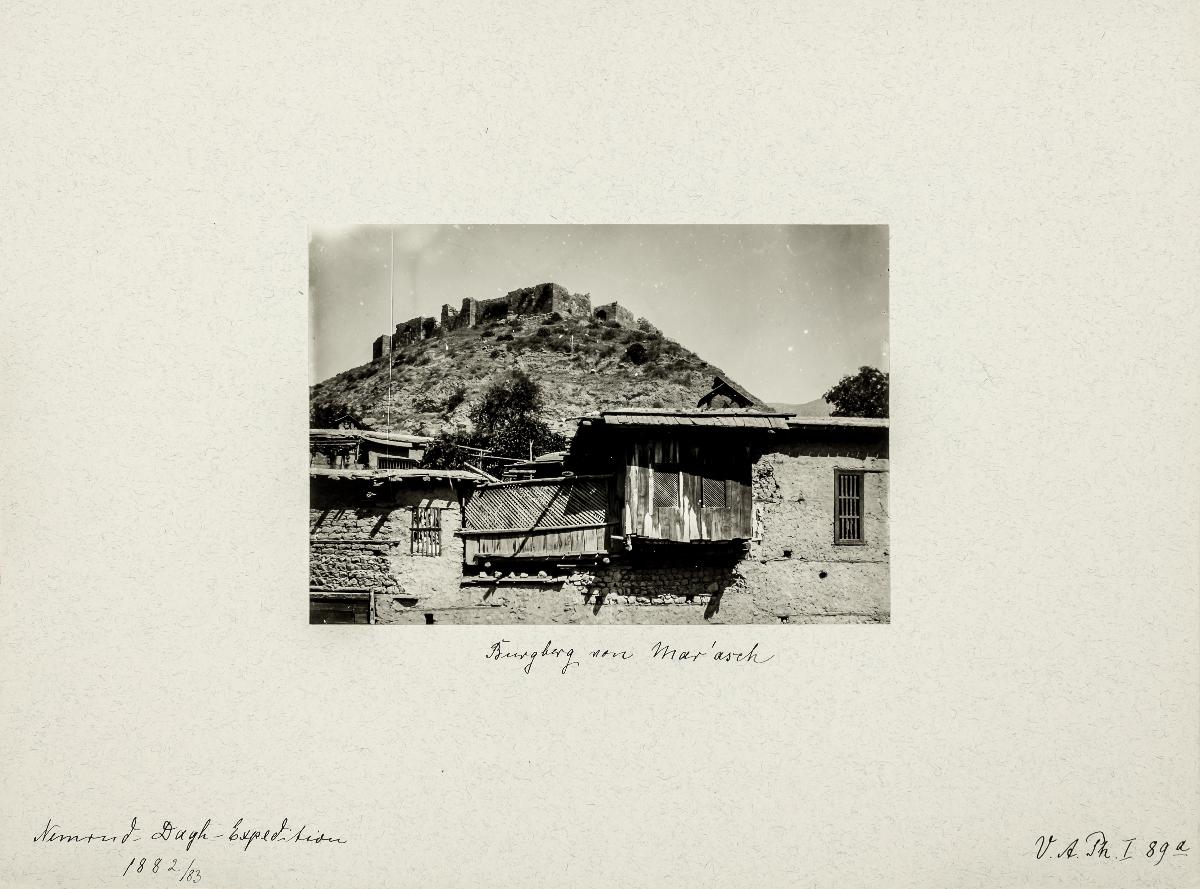 Burgberg von Mar'asch
Nemrud-Dagh-Expedition
1882/83
V. A. Ph. I 89a